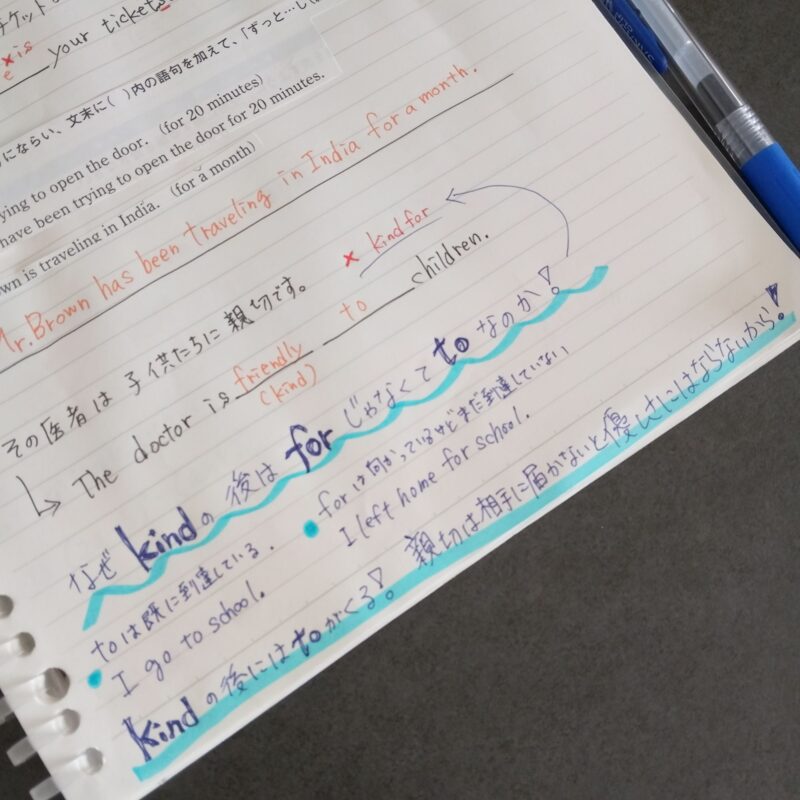 チケット
x is
e your tickets
にならい、文末に( )内の語句を加えて、「ずっと…し
ying to open the door. (for 20 minutes)
have been trying to open the door for 20 minutes.
wn is traveling in India. (for a month)
Mr. Brown has been traveling in India for a month.
× kind for
その医者は子供たちに親切です。
The doctor is friendly to children.
(kind)
なぜkindの後はforじゃなくてtoなのか!
toは既に到達している.
I go to school.
forは向かっているけどまだ到達していない
I left home for school.
kindの後にはtoがくる! 親切は相手に届かないと優しさにはならないから!